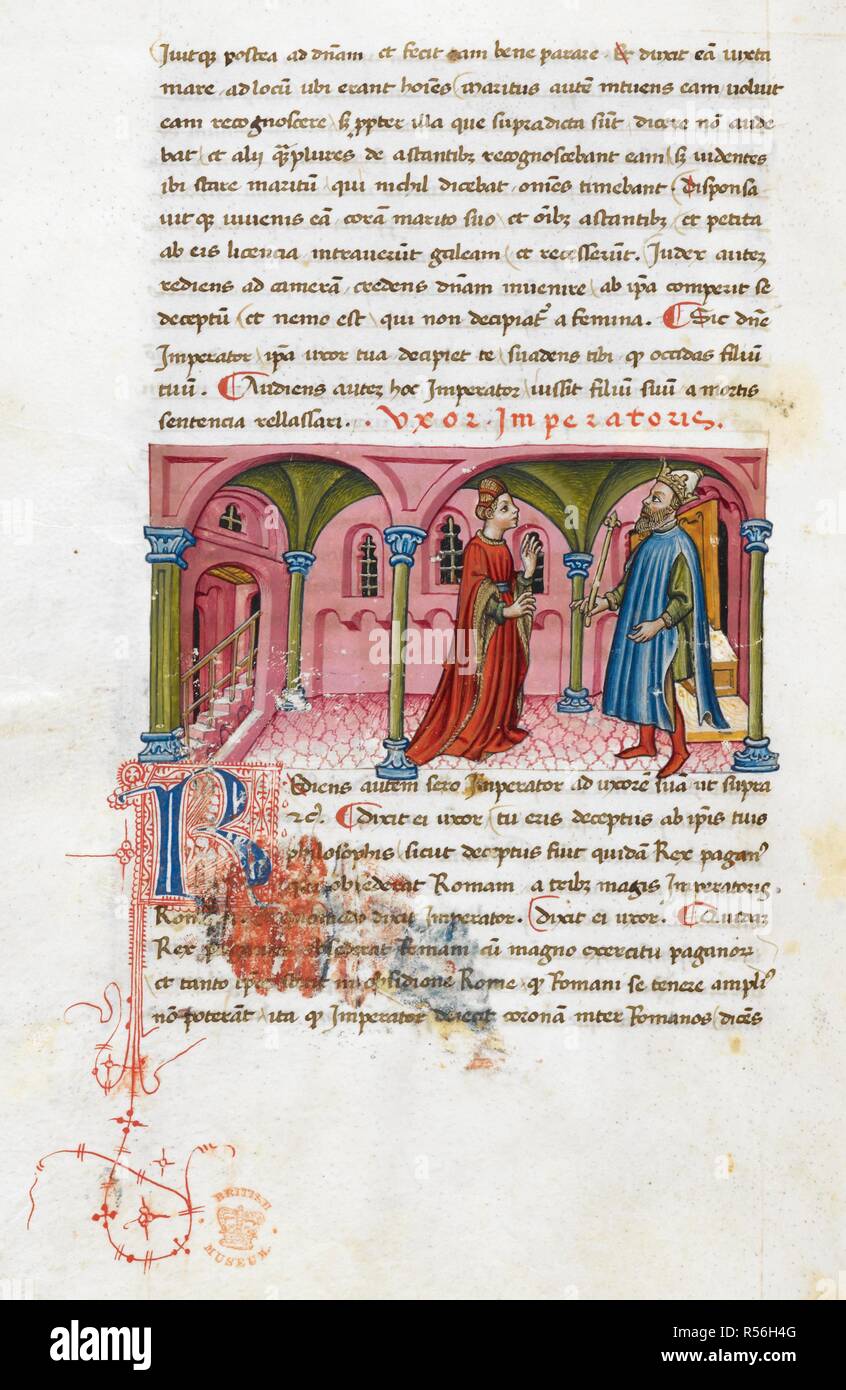 Juitqꝫ postea ad dn̄am et fecit eam bene parare. Et duxit eā iuxta
mare, ad locū ubi erant hoīes (maritus autē intuens eam, voluit
eam recognoscere, sꝫ ꝓpter illa que supradicta sūt, dicere nō aude
bat, et alii q̄mplures de astantibꝫ recognoscebant eam, sꝫ videntes
ibi stare maritū, qui nichil dicebat, omēs timebant. Disponsa
vit qꝫ iuvenis eā, corā marito suo, et oībꝫ astantibꝫ, et petita
ab eis licencia, intraverūt galeam, et recesserūt. Iudex autez
rediens ad camerā, credens dn̄am invenire, ab ip̄a comperit se
deceptū, et nemo est, qui non decipiat᷑ a femina. Sic dn̄e
Imperator, ip̄a uxor tua decipiet te, suadens tibi qꝫ occidas filiū
tuū. Audiens autez hoc Imperator, iussit filiū suū, a mortis
sentencia rellassari. . Uxor. Imperatoris.
Rediens autem sero Imperator ad uxorē suā ut supra
⁊cꝰ. Dixit ei uxor, tu eris deceptus ab ip̄is tuis
philosophis, sicut deceptus fuit quidā Rex paganꝰ
qui obsederat Romam, a tribꝫ magis Imperatoris.
dixit Imperator. dixit ei uxor.
Rex obsederat Romam cū magno exercitu paganoꝝ
et tanto Rome, qꝫ Romani se tenere ampliꝰ
nō poterāt, ita qꝫ Imperator coronā inter Romanos, dicēs
BRITISH
MUSEUM
alamy
alamy
Image ID: R56H4G
www.alamy.com